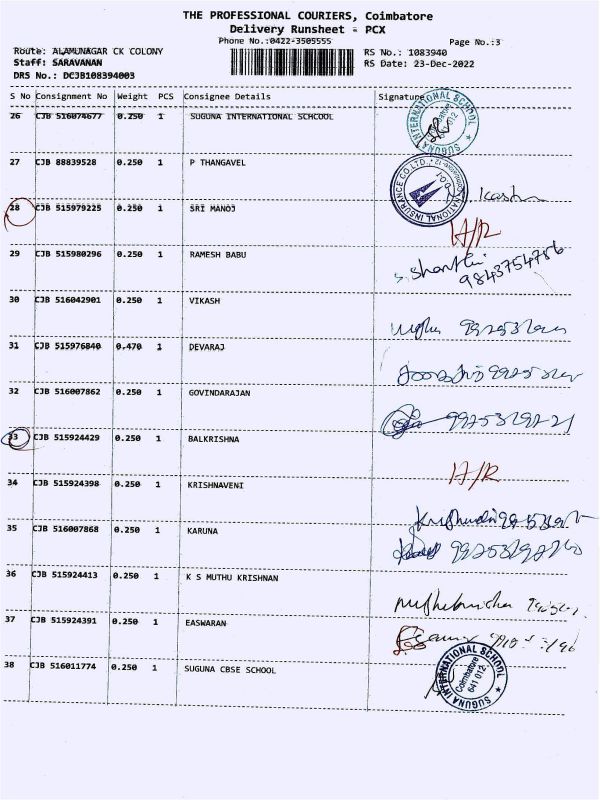 THE PROFESSIONAL COURIERS, Coimbatore
Delivery Runsheet - PCX
Phone No.:0422-3505555
Page No.:3
Route: ALAMUNAGAR CK COLONY
RS No.: 1083940
Staff: SARAVANAN
RS Date: 23-Dec-2022
DRS No.: DCJB108394003
S No Consignment No Weight PCS Consignee Details Signature
26 CJB 516074677 0.250 1 SUGUNA INTERNATIONAL SCHCOOL
SUGUNA INTERNATIONAL SCHOOL Coimbatore 641 012
27 CJB 88839528 0.250 1 P THANGAVEL
NATIONAL INSURANCE CO.LTD.,
28 CJB 515979225 0.250 1 SRI MANOJ
A/R
29 CJB 515980296 0.250 1 RAMESH BABU
S. Shanthi
9843754786
30 CJB 516042901 0.250 1 VIKASH
31 CJB 515976840 0.470 1 DEVARAJ
32 CJB 516007862 0.250 1 GOVINDARAJAN
33 CJB 515924429 0.250 1 BALKRISHNA
A/R
34 CJB 515924398 0.250 1 KRISHNAVENI
35 CJB 516007868 0.250 1 KARUNA
36 CJB 515924413 0.250 1 K S MUTHU KRISHNAN
37 CJB 515924391 0.250 1 EASWARAN
38 CJB 516011774 0.250 1 SUGUNA CBSE SCHOOL
SUGUNA INTERNATIONAL SCHOOL Coimbatore 641 012